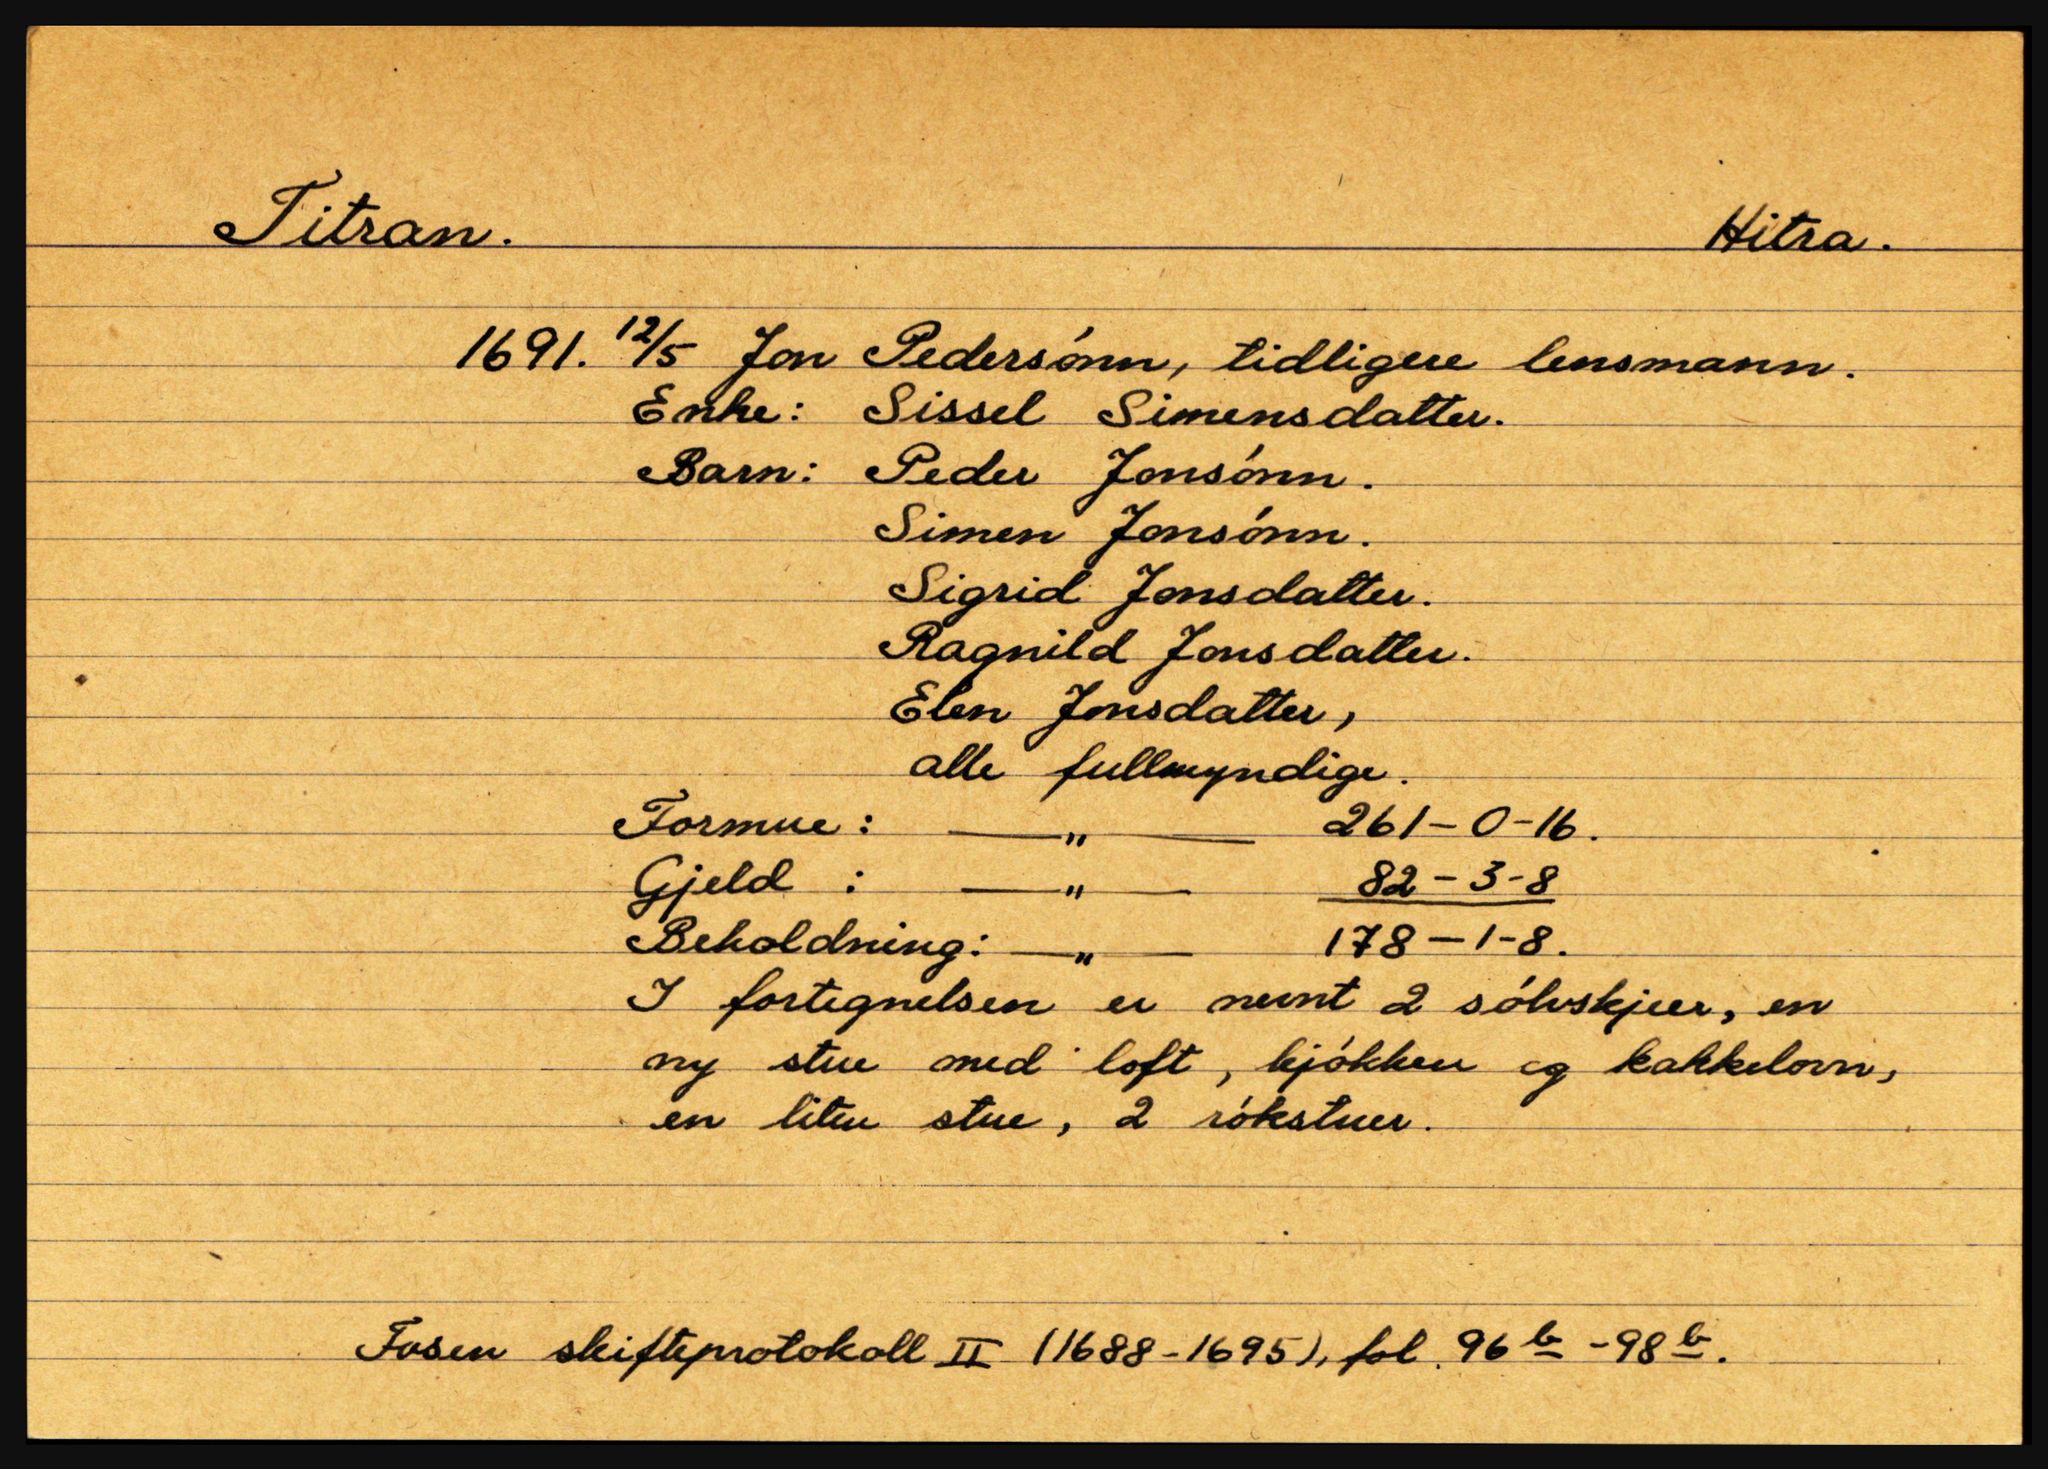 Titran. Hitra.
1691. 12/5 Jon Pedersónn, tidligere lensmann.
Enke: Sissel Simensdatter.
Barn: Peder Jonsónn.
Simen Jonsónn.
Sigrid Jonsdatter.
Ragnild Jonsdatter.
Elen Jonsdatter,
alle fullmyndige.
Formue: —„— 261-0-16.
Gjeld : —„— 82-3-8
Beholdning: —„— 178-1-8.
I fortegnelsen er nevnt 2 sólvskjeer, en
ny stue med loft, kjókken og kakkelovn,
en liten stue, 2 rókstuer.
Fosen skifteprotokoll II (1688-1695), fol. 96 b - 98 b.